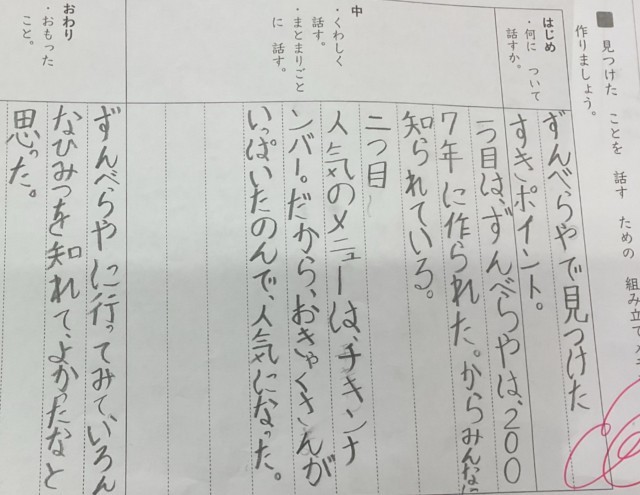 ■ 見つけた ことを 話す ための 組み立てメモ
作りましょう。
はじめ
・何に ついて
話すか。
ずんべらやで見つけた
すきポイント。
中
・くわしく
話す。
・まとまりごと
に 話す。
一つ目は、ずんべらやは、200
7年に作られた。からみんなに
知られている。
二つ目
人気のメニューは、チキンナ
ンバー。だから、おきゃくさんが
いっぱいたのんで、人気になった。
おわり
・おもった
こと。
ずんべらやに行ってみて、いろん
なひみつを知れて、よかったなと
思った。